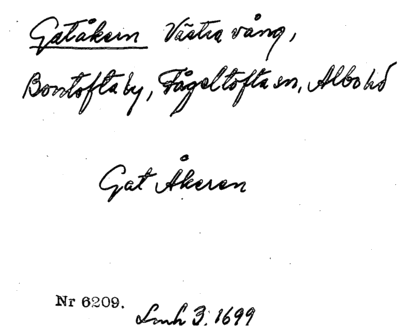 Gatåkern Västra vång,
Bontofta by, Fågeltofta sn, Albo hd
Gat Åkeren
Nr 6209.
Lmh 3. 1699